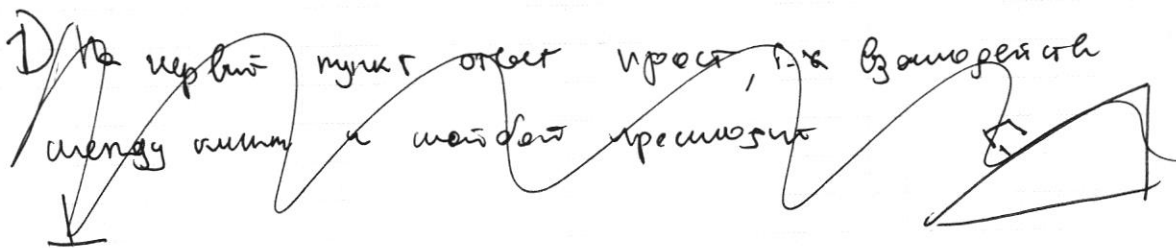 1) На первый пункт ответ прост, т.к взаимодейств
между ними и шайбой